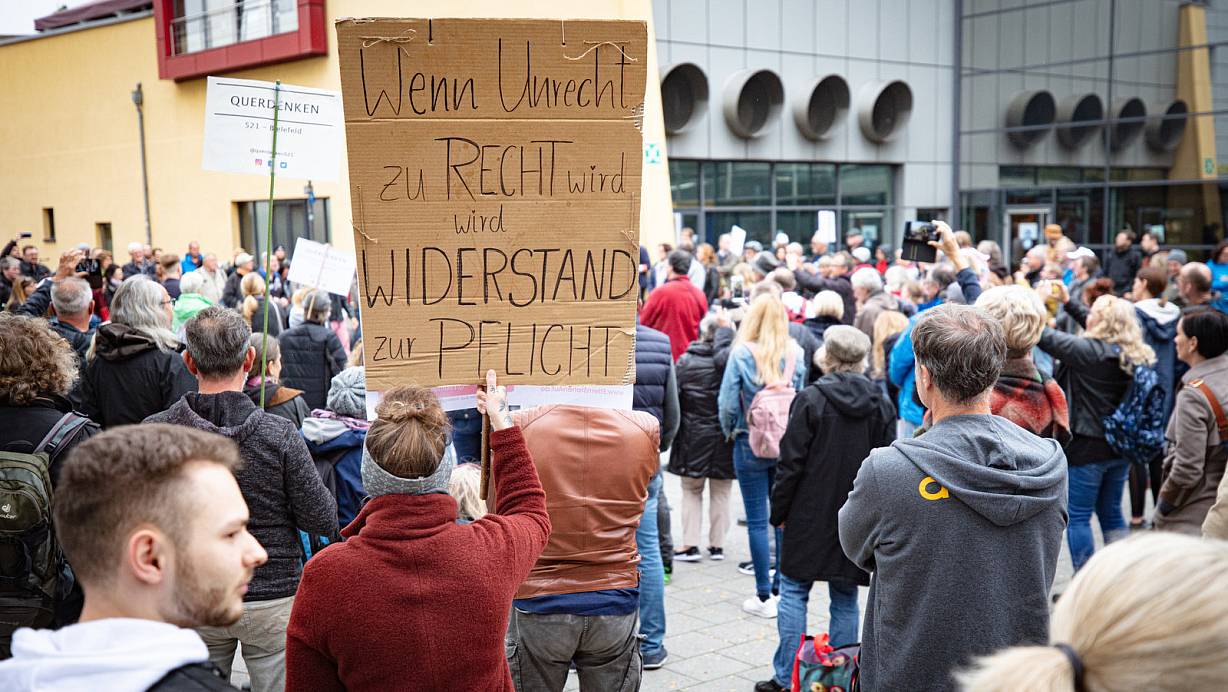 Wenn Unrecht
zu RECHT wird
wird
WIDERSTAND
zur PFLICHT
QUERDENKEN
521 - Bielefeld